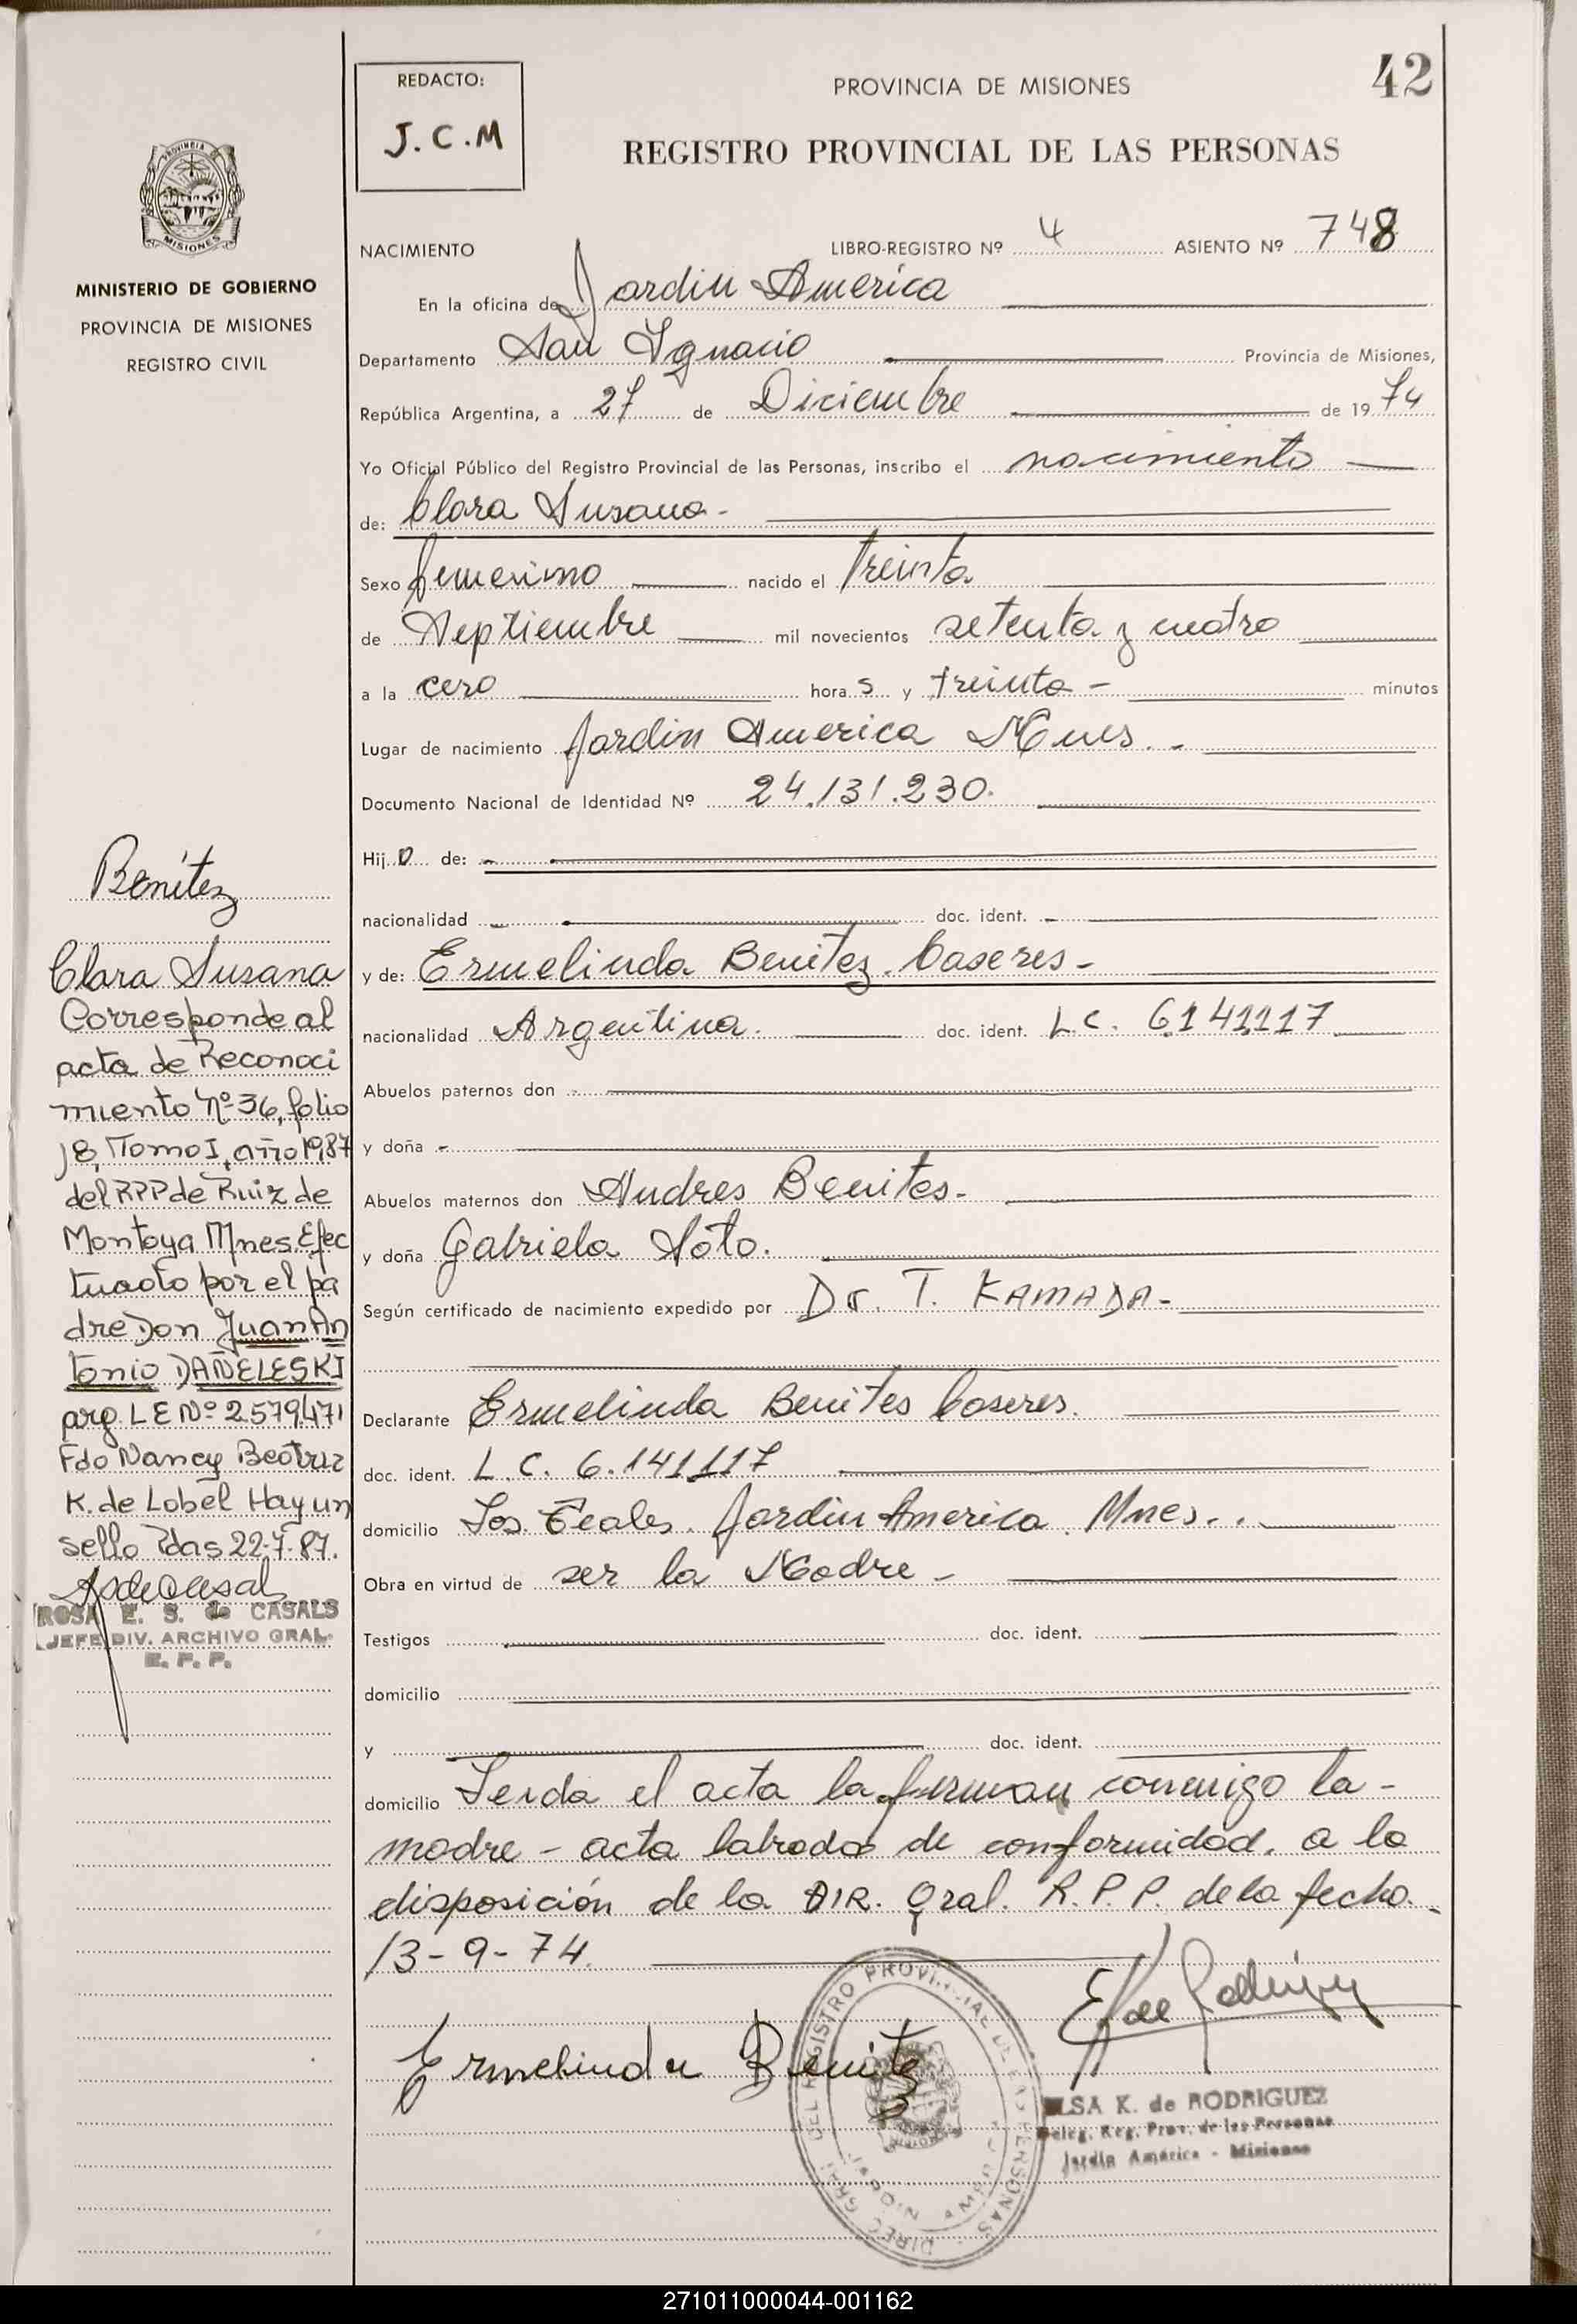 REDACTO:
J.C.M
PROVINCIA DE MISIONES
42
REGISTRO PROVINCIAL DE LAS PERSONAS
PROVINCIA
MISIONES
MINISTERIO DE GOBIERNO
PROVINCIA DE MISIONES
REGISTRO CIVIL
NACIMIENTO LIBRO-REGISTRO Nº 4 ASIENTO Nº 748
En la oficina de Jardin America
Departamento San Ignacio Provincia de Misiones,
República Argentina, a 27 de Diciembre de 1974
Yo Oficial Público del Registro Provincial de las Personas, inscribo el nacimiento
de: Clara Susana-
Sexo femenino nacido el treinta
de Septiembre mil novecientos setenta y cuatro
a la cero horas y treinta - minutos
Lugar de nacimiento Jardin America Mnes. -
Documento Nacional de Identidad Nº 24.131.230.
Hij o de: -
nacionalidad - doc. ident. -
y de: Ermelinda Benitez Caseres-
nacionalidad Argentina. doc. ident. L.C. 6141117
Abuelos paternos don -
y doña -
Abuelos maternos don Andres Benites-
y doña Gabriela Soto.
Según certificado de nacimiento expedido por Dr. T. KAMADA-
Declarante Ermelinda Benites Caseres.
doc. ident. L.C. 6.141117
domicilio Los Teales. Jardin America. Mnes..
Obra en virtud de ser la Madre -
Testigos doc. ident.
domicilio
y doc. ident.
domicilio Leida el acta la firman conmigo la -
madre - acta labrada de conformidad. a la
disposición de la DIR. Gral. R.P.P. de la fecha
13-9-74.
Benítez
Clara Susana
Corresponde al
acta de Reconoci
miento Nº 36, folio
18, Tomo I, año 1987
del RPP de Ruiz de
Montoya Mnes. Efec
tuado por el pa
dre Don Juan An
tonio DAÑELESKI
arg. LE Nº 2.579.471
Fdo Nancy Beatriz
K. de Lobel Hay un
sello Pdas 22-7-87.
ROSA E. S. de CASALS
JEFE DIV. ARCHIVO GRAL.
Ermelinda Benitez
ELSA K. de RODRIGUEZ
Deleg. Reg. Prov. de las Personas
Jardín América - Misiones
271011000044-001162